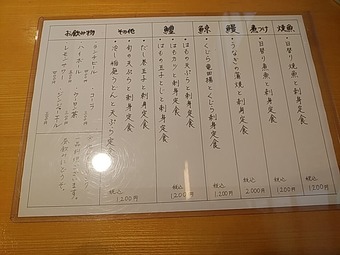 焼魚
・日替り焼魚と刺身定食
税込
1,200円
煮つけ
・日替り煮魚と刺身定食
税込
1,200円
鰻
・うなぎの蒲焼と刺身定食
税込
2,000円
鯨
・くじら竜田揚とくじら刺身定食
税込
1,200円
鱧
・はもの天ぷらと刺身定食
・はもカツと刺身定食
・はもの玉子とじと刺身定食
税込
1,200円
その他
・だし巻玉子と刺身定食
・旬の天ぷらと刺身定食
・冷し稲庭うどんと天ぷら定食
税込
1,200円
お飲み物
・ランチビール
・コーラ
・ハイボール
・ウーロン茶
・レモンサワー
・ジンジャエール